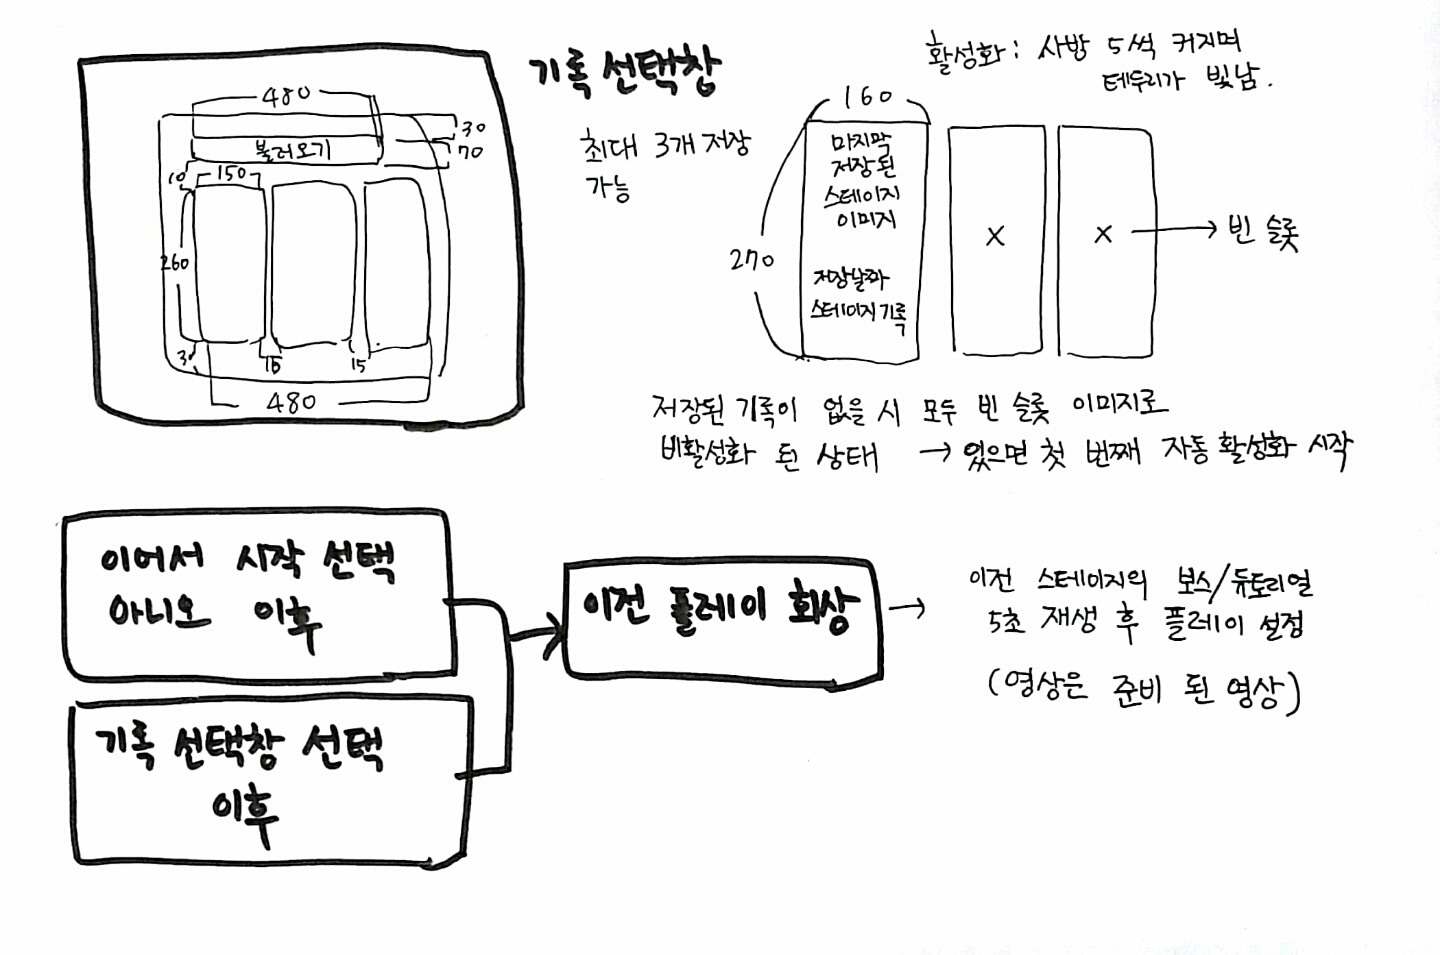 기록 선택창
최대 3개 저장
가능
480
30
70
불러오기
10
150
260
30
15
15
480
활성화 : 사방 5씩 커지며
테두리가 빛남.
160
270
마지막
저장된
스테이지
이미지
저장날짜
스테이지 기록
X
X
빈 슬롯
저장된 기록이 없을 시 모두 빈 슬롯 이미지로
비활성화 된 상태 → 있으면 첫 번째 자동 활성화 시작
이어서 시작 선택
아니오 이후
기록 선택창 선택
이후
이전 플레이 회상
이전 스테이지의 보스/튜토리얼
5초 재생 후 플레이 설정
(영상은 준비 된 영상)